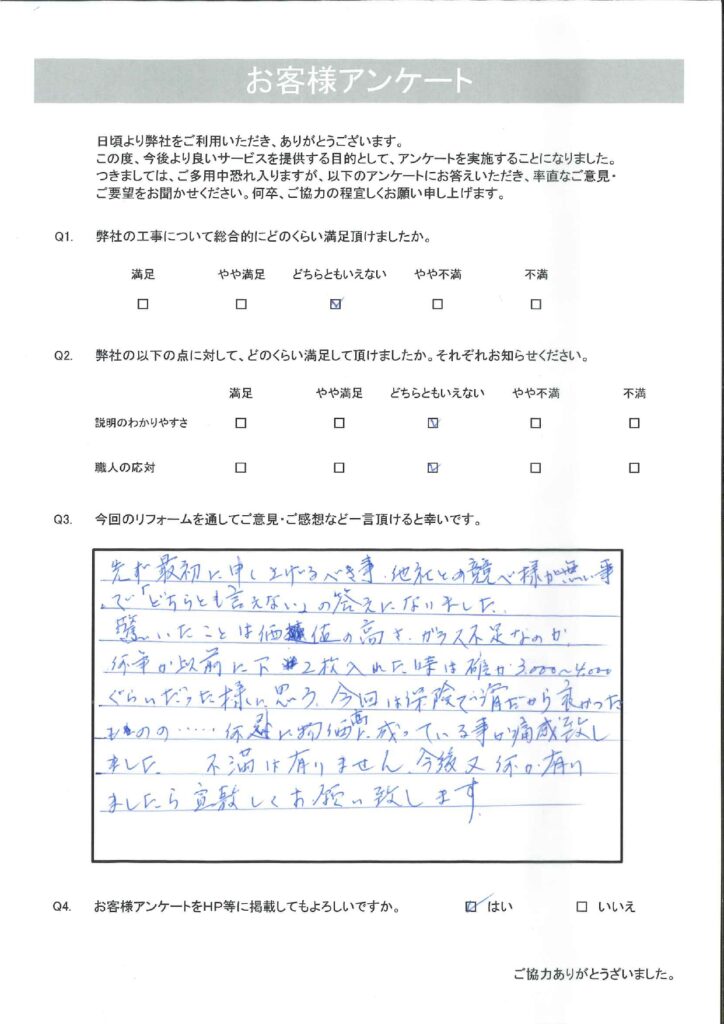 お客様アンケート
日頃より弊社をご利用いただき、ありがとうございます。
この度、今後より良いサービスを提供する目的として、アンケートを実施することになりました。
つきましては、ご多用中恐れ入りますが、以下のアンケートにお答えいただき、率直なご意見・
ご要望をお聞かせください。何卒、ご協力の程宜しくお願い申し上げます。
Q1. 弊社の工事について総合的にどのくらい満足頂けましたか。
満足 やや満足 どちらともいえない やや不満 不満
Q2. 弊社の以下の点に対して、どのくらい満足して頂けましたか。それぞれお知らせください。
満足 やや満足 どちらともいえない やや不満 不満
説明のわかりやすさ
職人の応対
Q3. 今回のリフォームを通してご意見・ご感想など一言頂けると幸いです。
先ず最初に申し上げるべき事、他社との競べ様が無い事
で「どちらとも言えない」の答えになりました。
驚いたことは価値の高さ、ガラス不足なのか、
以前に下2枚入れた時は確か3.000〜4.000
ぐらいだった様に思う、今回は保険で済だから良かった
ものの……物価高に成っている事が痛感致し
ました 不満は有りません、今後又何か有り
ましたら宜敷しくお願い致します。
Q4. お客様アンケートをHP等に掲載してもよろしいですか。 はい いいえ
ご協力ありがとうざいました。